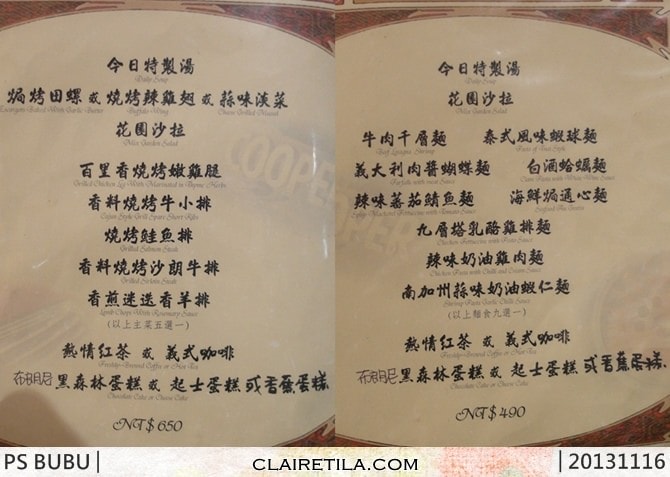 今日特製湯
Daily Soup
焗烤田螺 或 燒烤辣雞翅 或 蒜味淡菜
花園沙拉
Mix Garden Salad
百里香燒烤嫩雞腿
Grilled Chicken Leg With Marinated in Thyme Herbs
香料燒烤牛小排
Cajun Style Grill Spare Short Ribs
燒烤鮭魚排
Grilled Salmon Steak
香料燒烤沙朗牛排
Grilled Sirloin Steak
香煎迷迭香羊排
Lamb Chops With Rosemary Sauce
(以上主菜五選一)
熱情紅茶 或 義式咖啡
Freshly-Brewed Coffee or Hot Tea
布朗尼 黑森林蛋糕 或 起士蛋糕 或香蕉蛋糕
Chocolate Cake or Cheese Cake
NT$ 650
今日特製湯
Daily Soup
花園沙拉
Mix Garden Salad
牛肉千層麵 泰式風味蝦球麵
義大利肉醬蝴蝶麵 白酒蛤蠣麵
辣味蕃茄鯖魚麵 海鮮焗通心麵
九層塔乳酪雞排麵
辣味奶油雞肉麵
南加州蒜味奶油蝦仁麵
(以上麵食九選一)
熱情紅茶 或 義式咖啡
Freshly-Brewed Coffee or Hot Tea
布朗尼 黑森林蛋糕 或 起士蛋糕 或香蕉蛋糕
Chocolate Cake or Cheese Cake
NT$ 490
PS BUBU| CLAIRETILA.COM |20131116